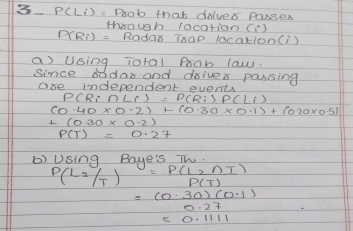 3_ P(Li) = Prob that driver Passes
through location (i)
P(Ri) = Radar Trap location(i)
a) Using Total Prob law.
Since radar and driver passing
are independent events
P(Ri ∩ Li) = P(Ri) P(Li)
(0.40 x 0.2) + (0.30 x 0.1) + (0.20x0.5)
+ (0.30 x 0.2)
P(T) = 0.27
b) Using Baye's Th.
P(L2/T) = P(L2∩T)
P(T)
= (0.30)(0.1)
0.27
= 0.1111